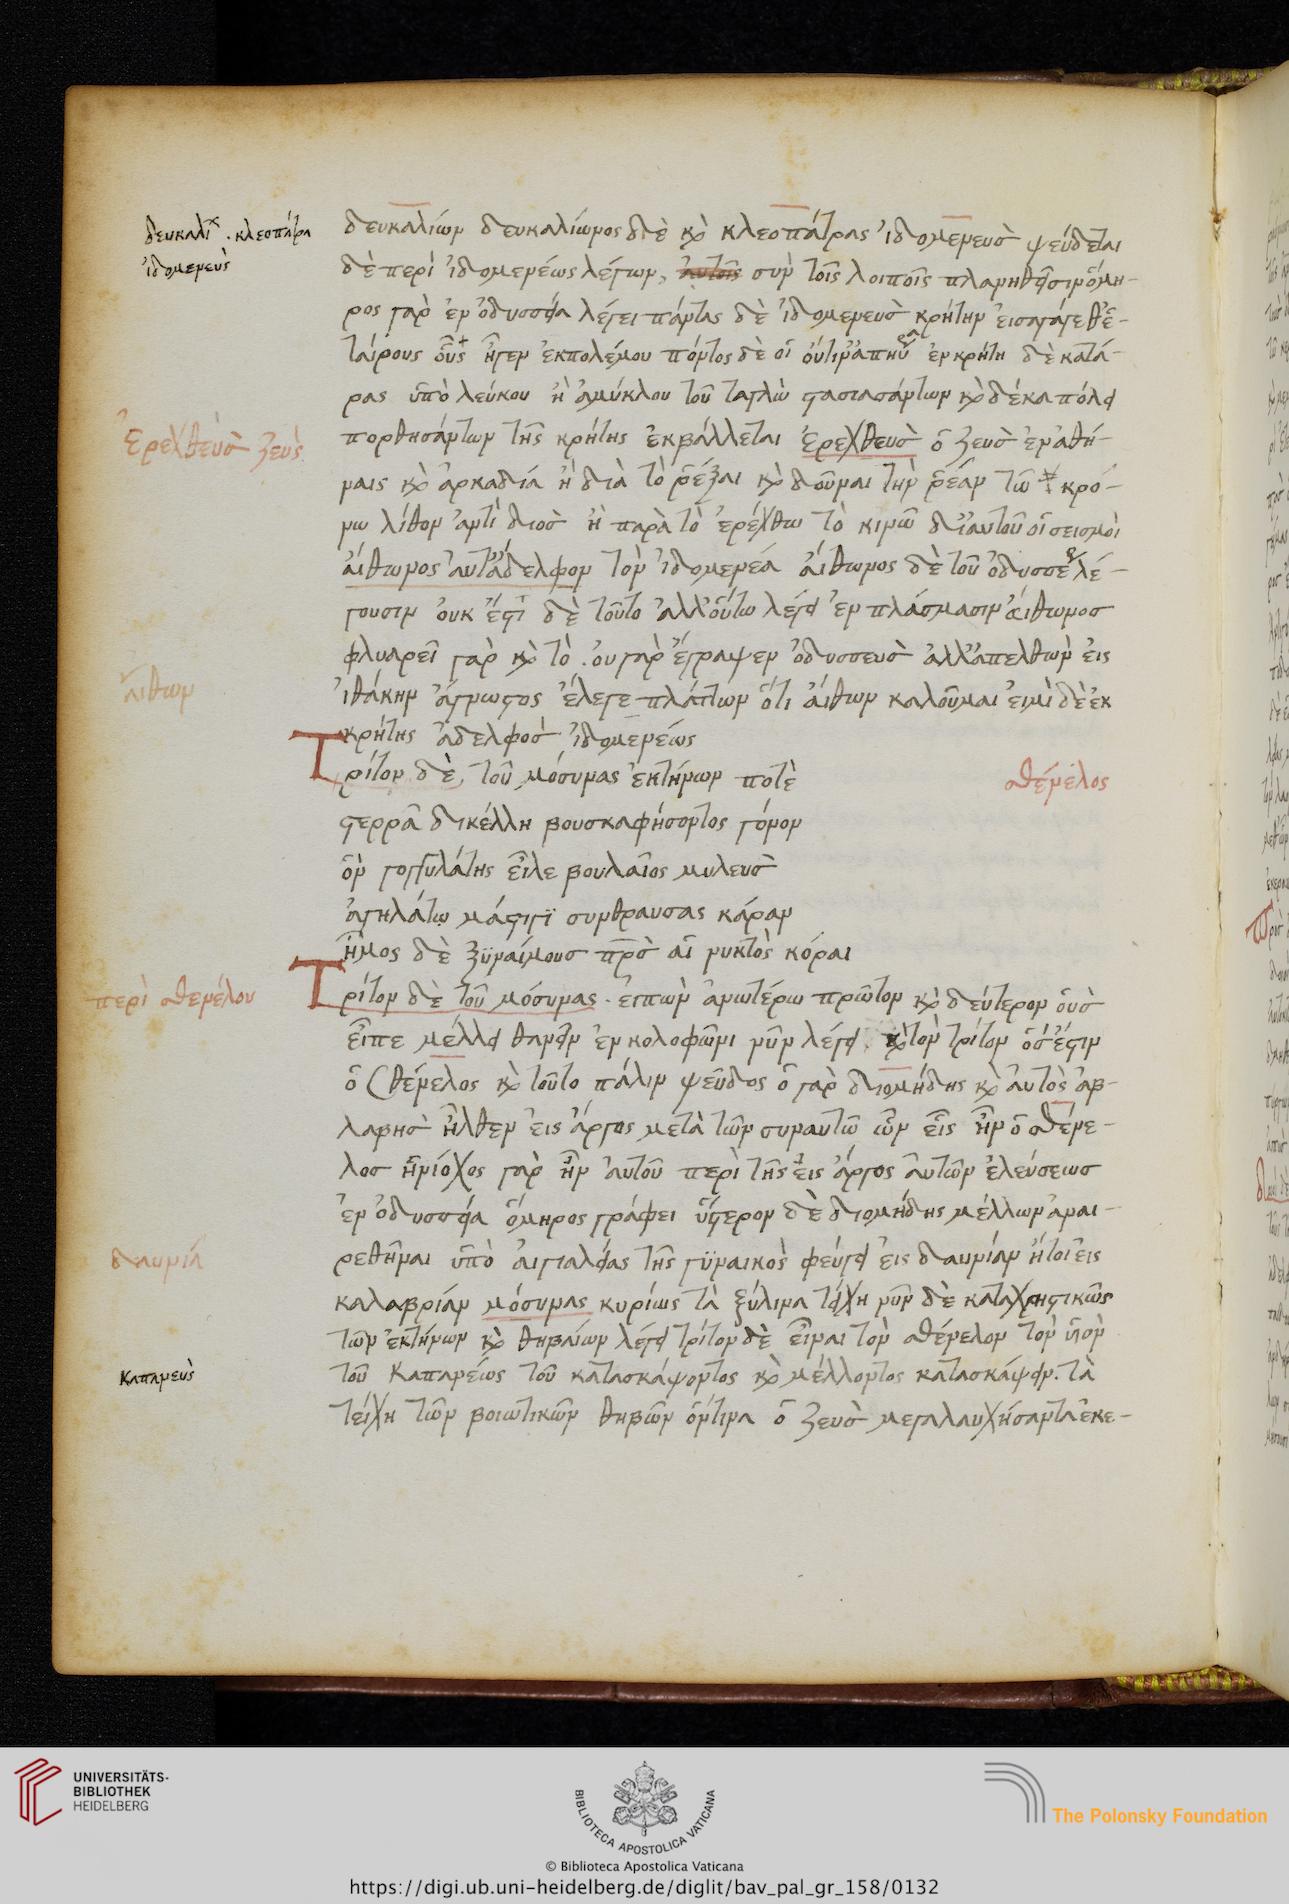 δευκαλί . κλεοπάτρα
ἰδομενεὺς
δευκαλίων δευκαλίωνος δὲ καὶ κλεοπάτρας ἰδομενεὺς ψεύδεται
δὲ περὶ ἰδομενέως λέγων, σὺν τοῖς λοιποῖς πλανηθῆσιν ὅμη-
ρος γὰρ ἐν ὀδυσσεία λέγει πάντας δὲ ἰδομενεὺς κρήτην εἰσήγαγε θ' ἑ-
ταίρους οὓς ἦγεν ἐκπολέμου πόντος δὲ οἱ οὔτιν' ἀπηύρα ἐν κρήτη δὲ κατά-
ρας ὑπὸ λεύκου ἢ ἀμύκλου τοῦ ταγλὼ στασιασάντων καὶ δέκα πόλει
πορθησάντων τῆς κρήτης ἐκβάλλεται ἐρεχθεὺς ὁ ζεὺς ἐν ἀθή-
ἐρεχθεὺς ζεὺς
ναις καὶ ἀρκαδία ἢ διὰ τὸ ῥέξαι καὶ δοῦναι τὴν ῥέαν τῶ κρό-
νω λίθον ἀντὶ διὸς ἢ παρὰ τὸ ἐρέχθω τὸ κινῶ δι' αὐτοῦ οἱ σεισμοὶ
αἴθωνος αὐτάδελφον τὸν ἰδομενέα αἴθωνος δὲ τοῦ ὀδυσσέως λέ-
γουσιν οὐκ ἔστι δὲ τοῦτο ἀλλ' οὕτω λέγει ἐν πλάσμασιν αἴθωνος
φλυαρεῖ γὰρ καὶ τὸ . οὐ γὰρ ἔγραψεν ὀδυσσεὺς ἀλλ' ἀπελθὼν εἰς
αἴθων
ἰθάκην ἄγνωστος ἔλεγε πλάττων ὅτι αἴθων καλοῦμαι εἰμὶ δὲ ἐκ
κρήτης ἀδελφὸς ἰδομενέως
Τρίτον δὲ, τοῦ μόσυνας ἐκτήνων ποτὲ
σθένελος
στερρᾶ δικέλλη βουσκαφήσοντος γόνον
ὃν γογγυλάτης εἷλε βουλαῖος μυλεὺς
ἀγηλάτω μάστιγι συνθραύσας κάραν
ἦμος δὲ ξυναίμους πρὸς αἱ νυκτὸς κόραι
Τρίτον δὲ τοῦ μόσυνας . εἰπὼν ἀνωτέρω πρῶτον καὶ δεύτερον οὓς
περὶ σθενέλου
εἶπε μέλλει θανεῖν ἐν κολοφῶνι νῦν λέγει καὶ τὸν τρίτον ὅς ἐστιν
ὁ σθένελος καὶ τοῦτο πάλιν ψεῦδος ὁ γὰρ διομήδης καὶ αὐτὸς ἀβ-
λαβὴς ἦλθεν εἰς ἄργος μετὰ τῶν συναυτῶ ὧν εἷς ἦν ὁ σθένε-
λος ἡνίοχος γὰρ ἦν αὐτοῦ περὶ τῆς εἰς ἄργος αὐτῶν ἐλεύσεως
ἐν ὀδυσσεία ὅμηρος γράφει ὕστερον δὲ διομήδης μέλλων ἀναι-
ρεθῆναι ὑπὸ αἰγιαλείας τῆς γυναικὸς φεύγει εἰς δαυνίαν ἤτοι εἰς
δαυνία
καλαβρίαν μόσυνας κυρίως τὰ ξύλινα τείχη νῦν δὲ καταχρηστικῶς
τῶν ἐκτήνων καὶ θηβαίων λέγει τρίτον δὲ εἶναι τὸν σθένελον τὸν υἱὸν
Καπανεὺς
τοῦ Καπανέως τοῦ κατασκάψοντος καὶ μέλλοντος κατασκάψειν . τὰ
τείχη τῶν βοιωτικῶν θηβῶν ὅντινα ὁ ζεὺς μεγαλαυχήσαντα ἐκε-
UNIVERSITÄTS-
BIBLIOTHEK
HEIDELBERG
BIBLIOTHECA APOSTOLICA VATICANA
The Polonsky Foundation
© Biblioteca Apostolica Vaticana
https://digi.ub.uni-heidelberg.de/diglit/bav_pal_gr_158/0132